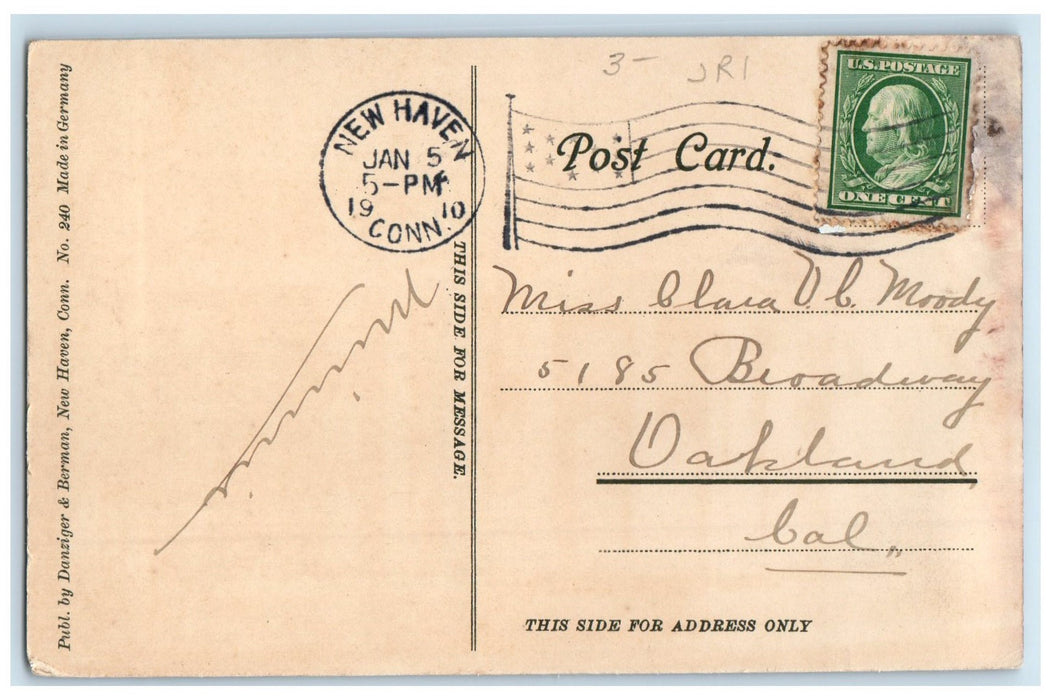 3- JR1
U.S. POSTAGE
ONE CENT
NEW HAVEN
JAN 5
5-PM
19 10
CONN.
Post Card.
Miss Clara V. C. Moody
5185 Broadway
Oakland,
Cal.,
THIS SIDE FOR ADDRESS ONLY
THIS SIDE FOR MESSAGE.
Publ. by Danziger & Berman, New Haven, Conn. No. 240 Made in Germany